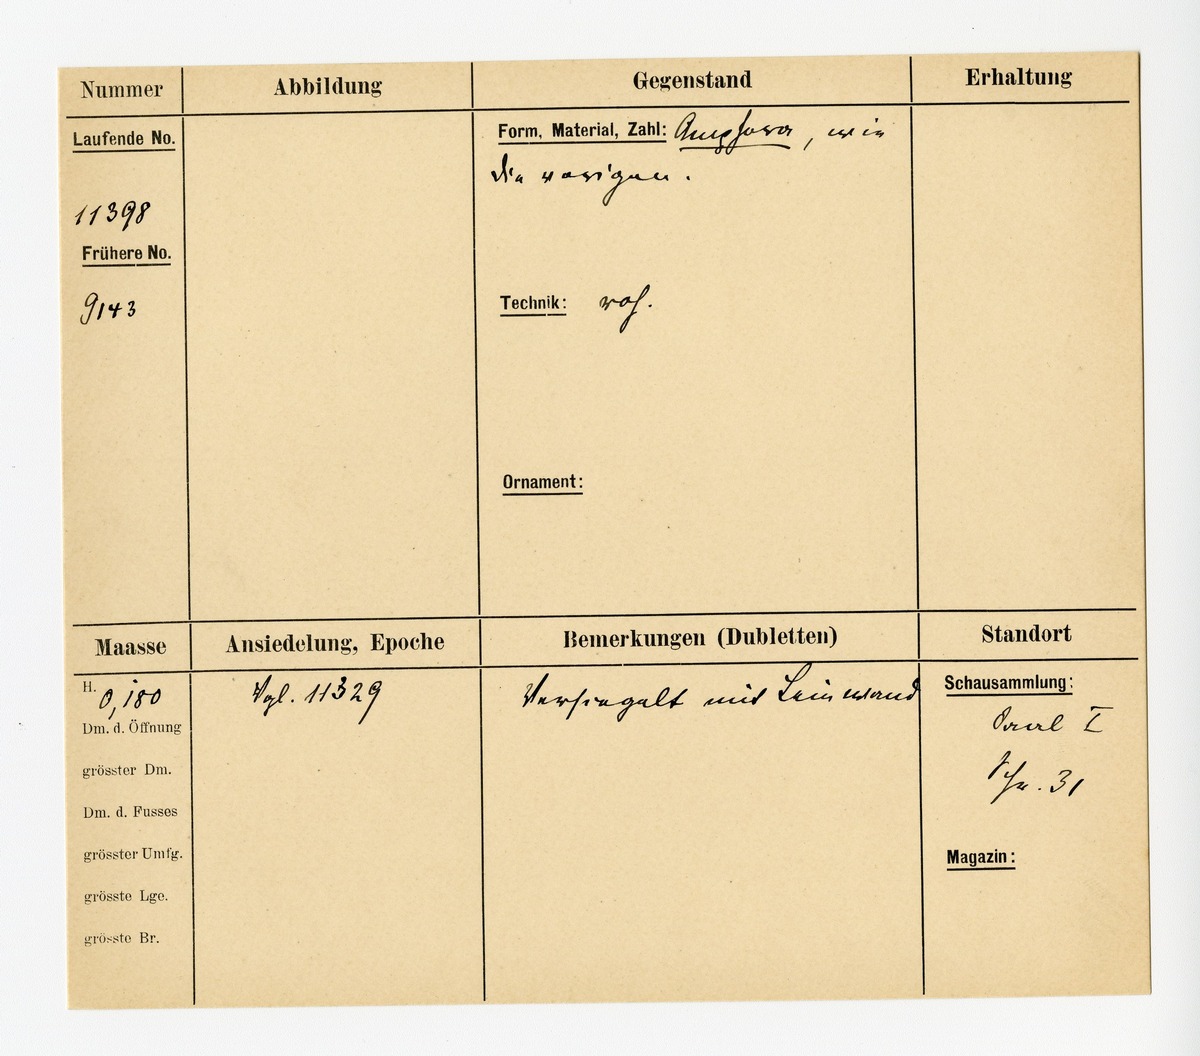 Nummer
Abbildung
Gegenstand
Erhaltung
Laufende No.
11398
Frühere No.
9143
Form, Material, Zahl: Amphora, wie
die vorigen.
Technik: roh.
Ornament:
Maasse
Ansiedelung, Epoche
Bemerkungen (Dubletten)
Standort
H. 0,180
Dm. d. Öffnung
grösster Dm.
Dm. d. Fusses
grösster Umfg.
grösste Lge.
grösste Br.
Vgl. 11329
Versiegelt mit Leinwand
Schausammlung:
Saal I
Schr. 31
Magazin: